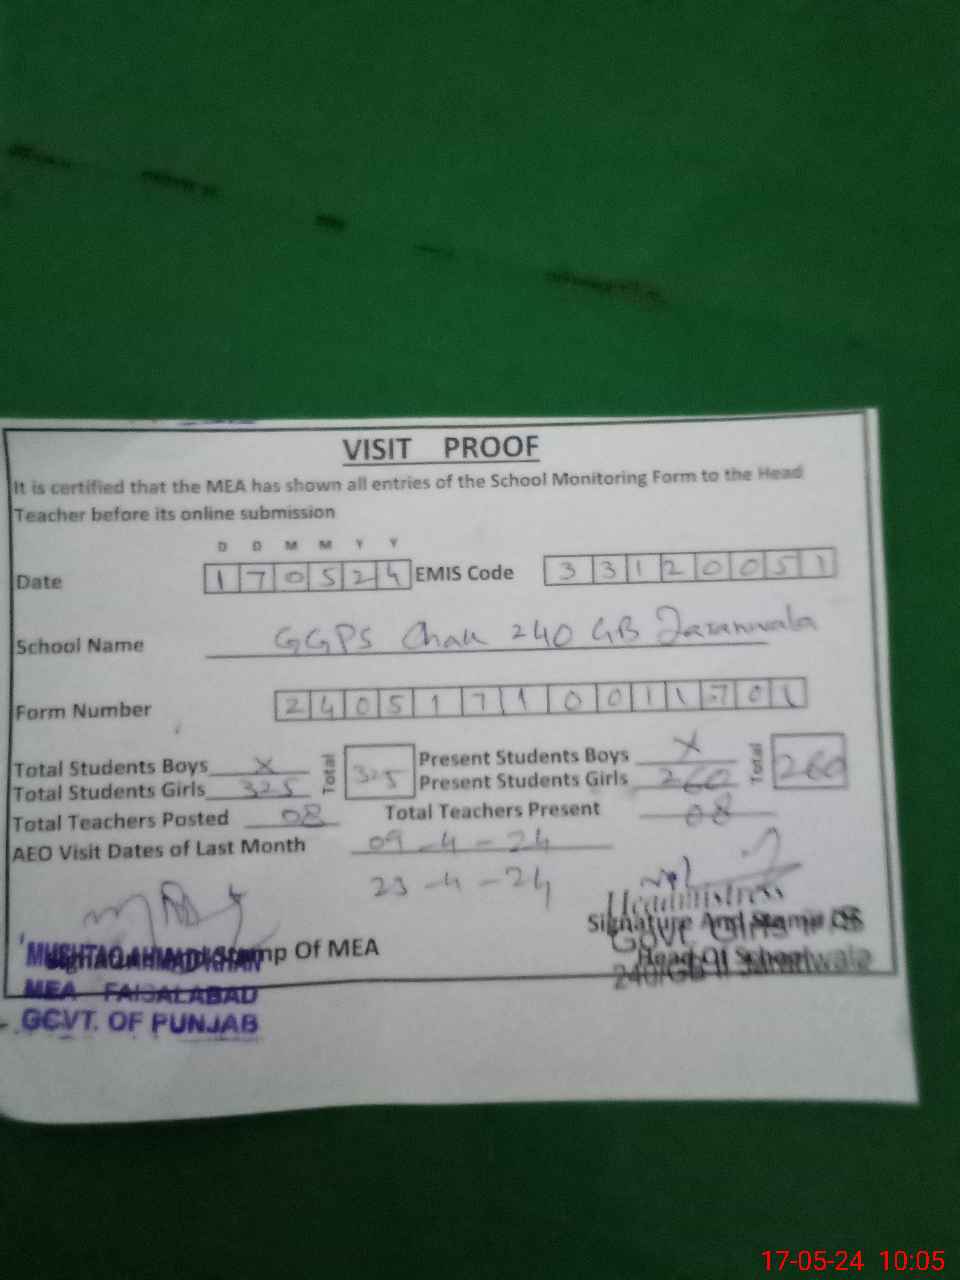 VISIT PROOF
It is certified that the MEA has shown all entries of the School Monitoring Form to the Head
Teacher before its online submission
D D M M Y Y
Date 1 7 0 5 2 4 EMIS Code 3 3 1 2 0 0 5 1
School Name GGPS Chak 240 GB Jaranwala
Form Number 2 4 0 5 1 7 1 0 0 1 1 7 0 1
Total Students Boys X Total 325 Present Students Boys X Total 260
Total Students Girls 325 Present Students Girls 260
Total Teachers Posted 08 Total Teachers Present 08
AEO Visit Dates of Last Month 09-4-24
23-4-24
Headmistress
Signature And Stamp Of
Head Of School
Stamp Of MEA
MUSHTAQ AHMAD KHAN
MEA FAISALABAD
GOVT. OF PUNJAB
17-05-24 10:05